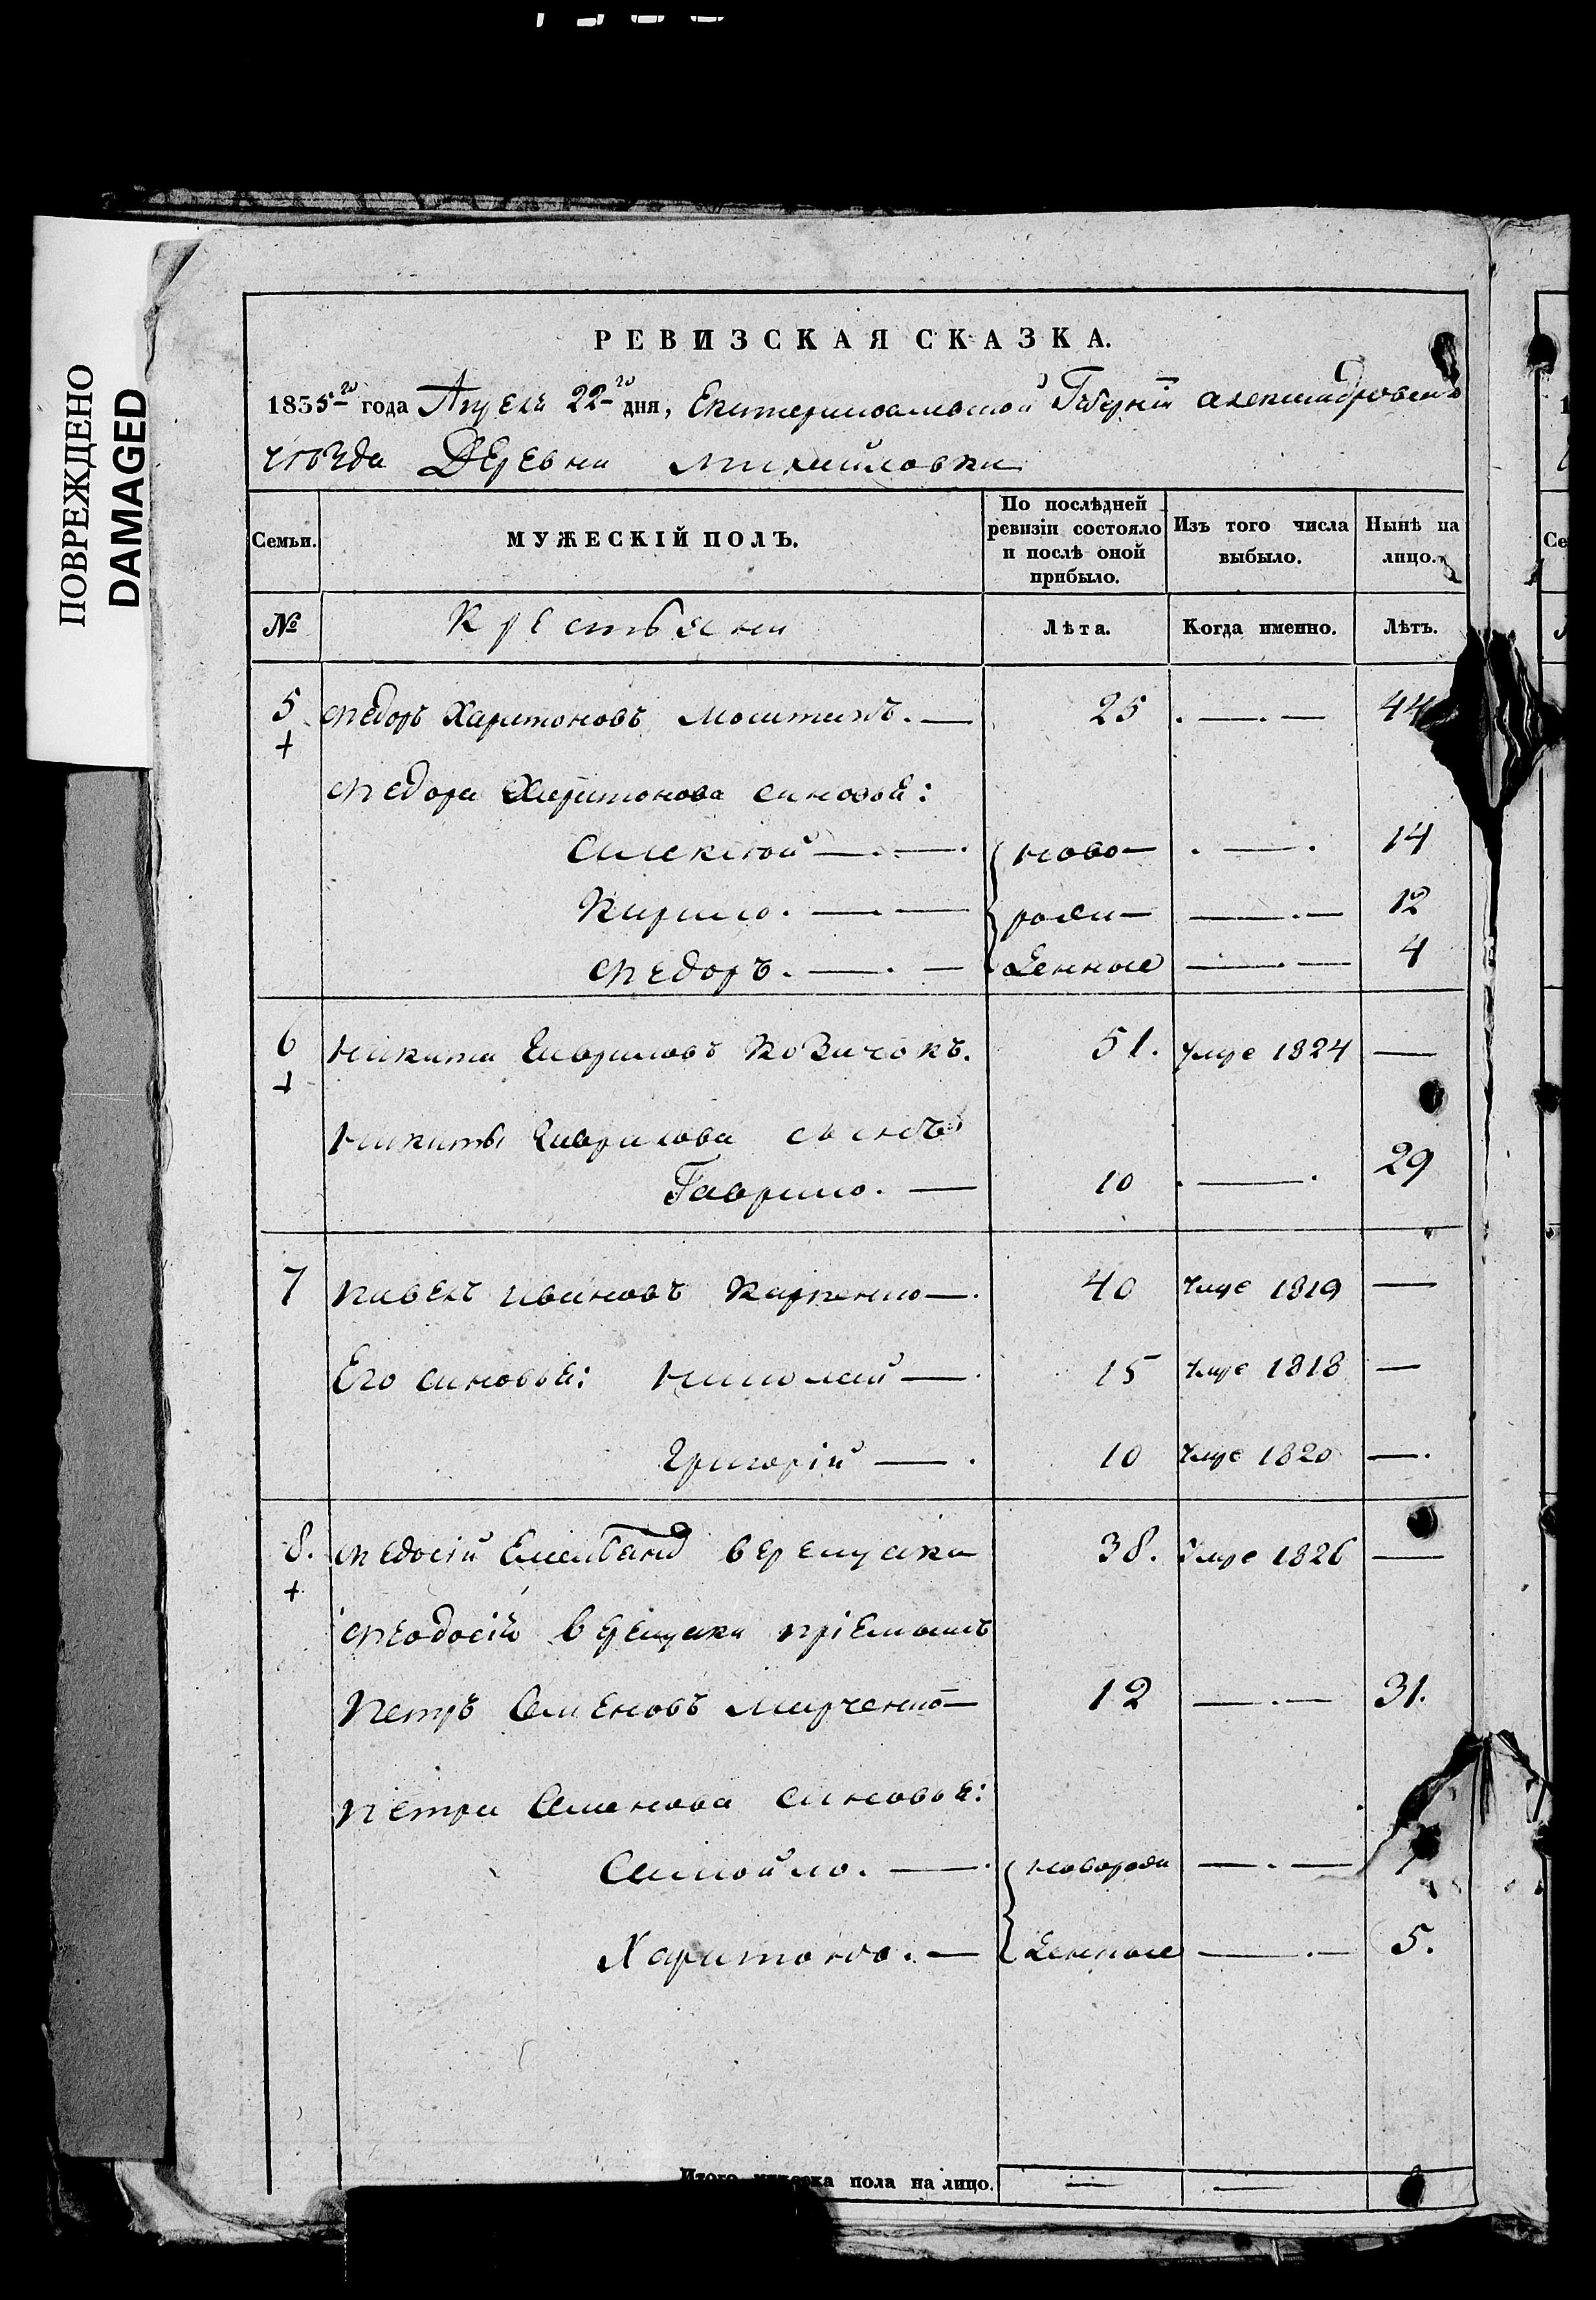 ПОВРЕЖДЕНО
DAMAGED
РЕВИЗСКАЯ СКАЗКА.
1835го года Апреля 22го дня, Екатеринославской Губерніи Александровскаго
уѣзда Деревни Михайловки
Семьи. МУЖЕСКІЙ ПОЛЪ. По послѣдней ревизіи состояло и послѣ оной прибыло. Изъ того числа выбыло. Нынѣ на лицо.
№ Крестьяни Лѣта. Когда именно. Лѣтъ.
5 Федоръ Харитоновъ 25 44
Федора Харитонова синовья:
Алексѣй ново- 14
Кирило. рожи- 12
Федоръ. денные 4
6 Никита Гавриловъ Козачокъ. 51. умре 1824
Никиты Гаврилова сынъ
Гаврило. 10 29
7 Павелъ Ивановъ Карпенко 40 умре 1819
Его синовья: Николай 15 умре 1818
Григорій 10 умре 1820
8. Федосій Верещака 38. умре 1826
Феодосія Верещаки пріемышъ
Петръ Семеновъ Марченко 12 31.
Петра Семенова синовья:
Самойло. новорож
Харитонъ. денные 5.
Итого пола на лицо.